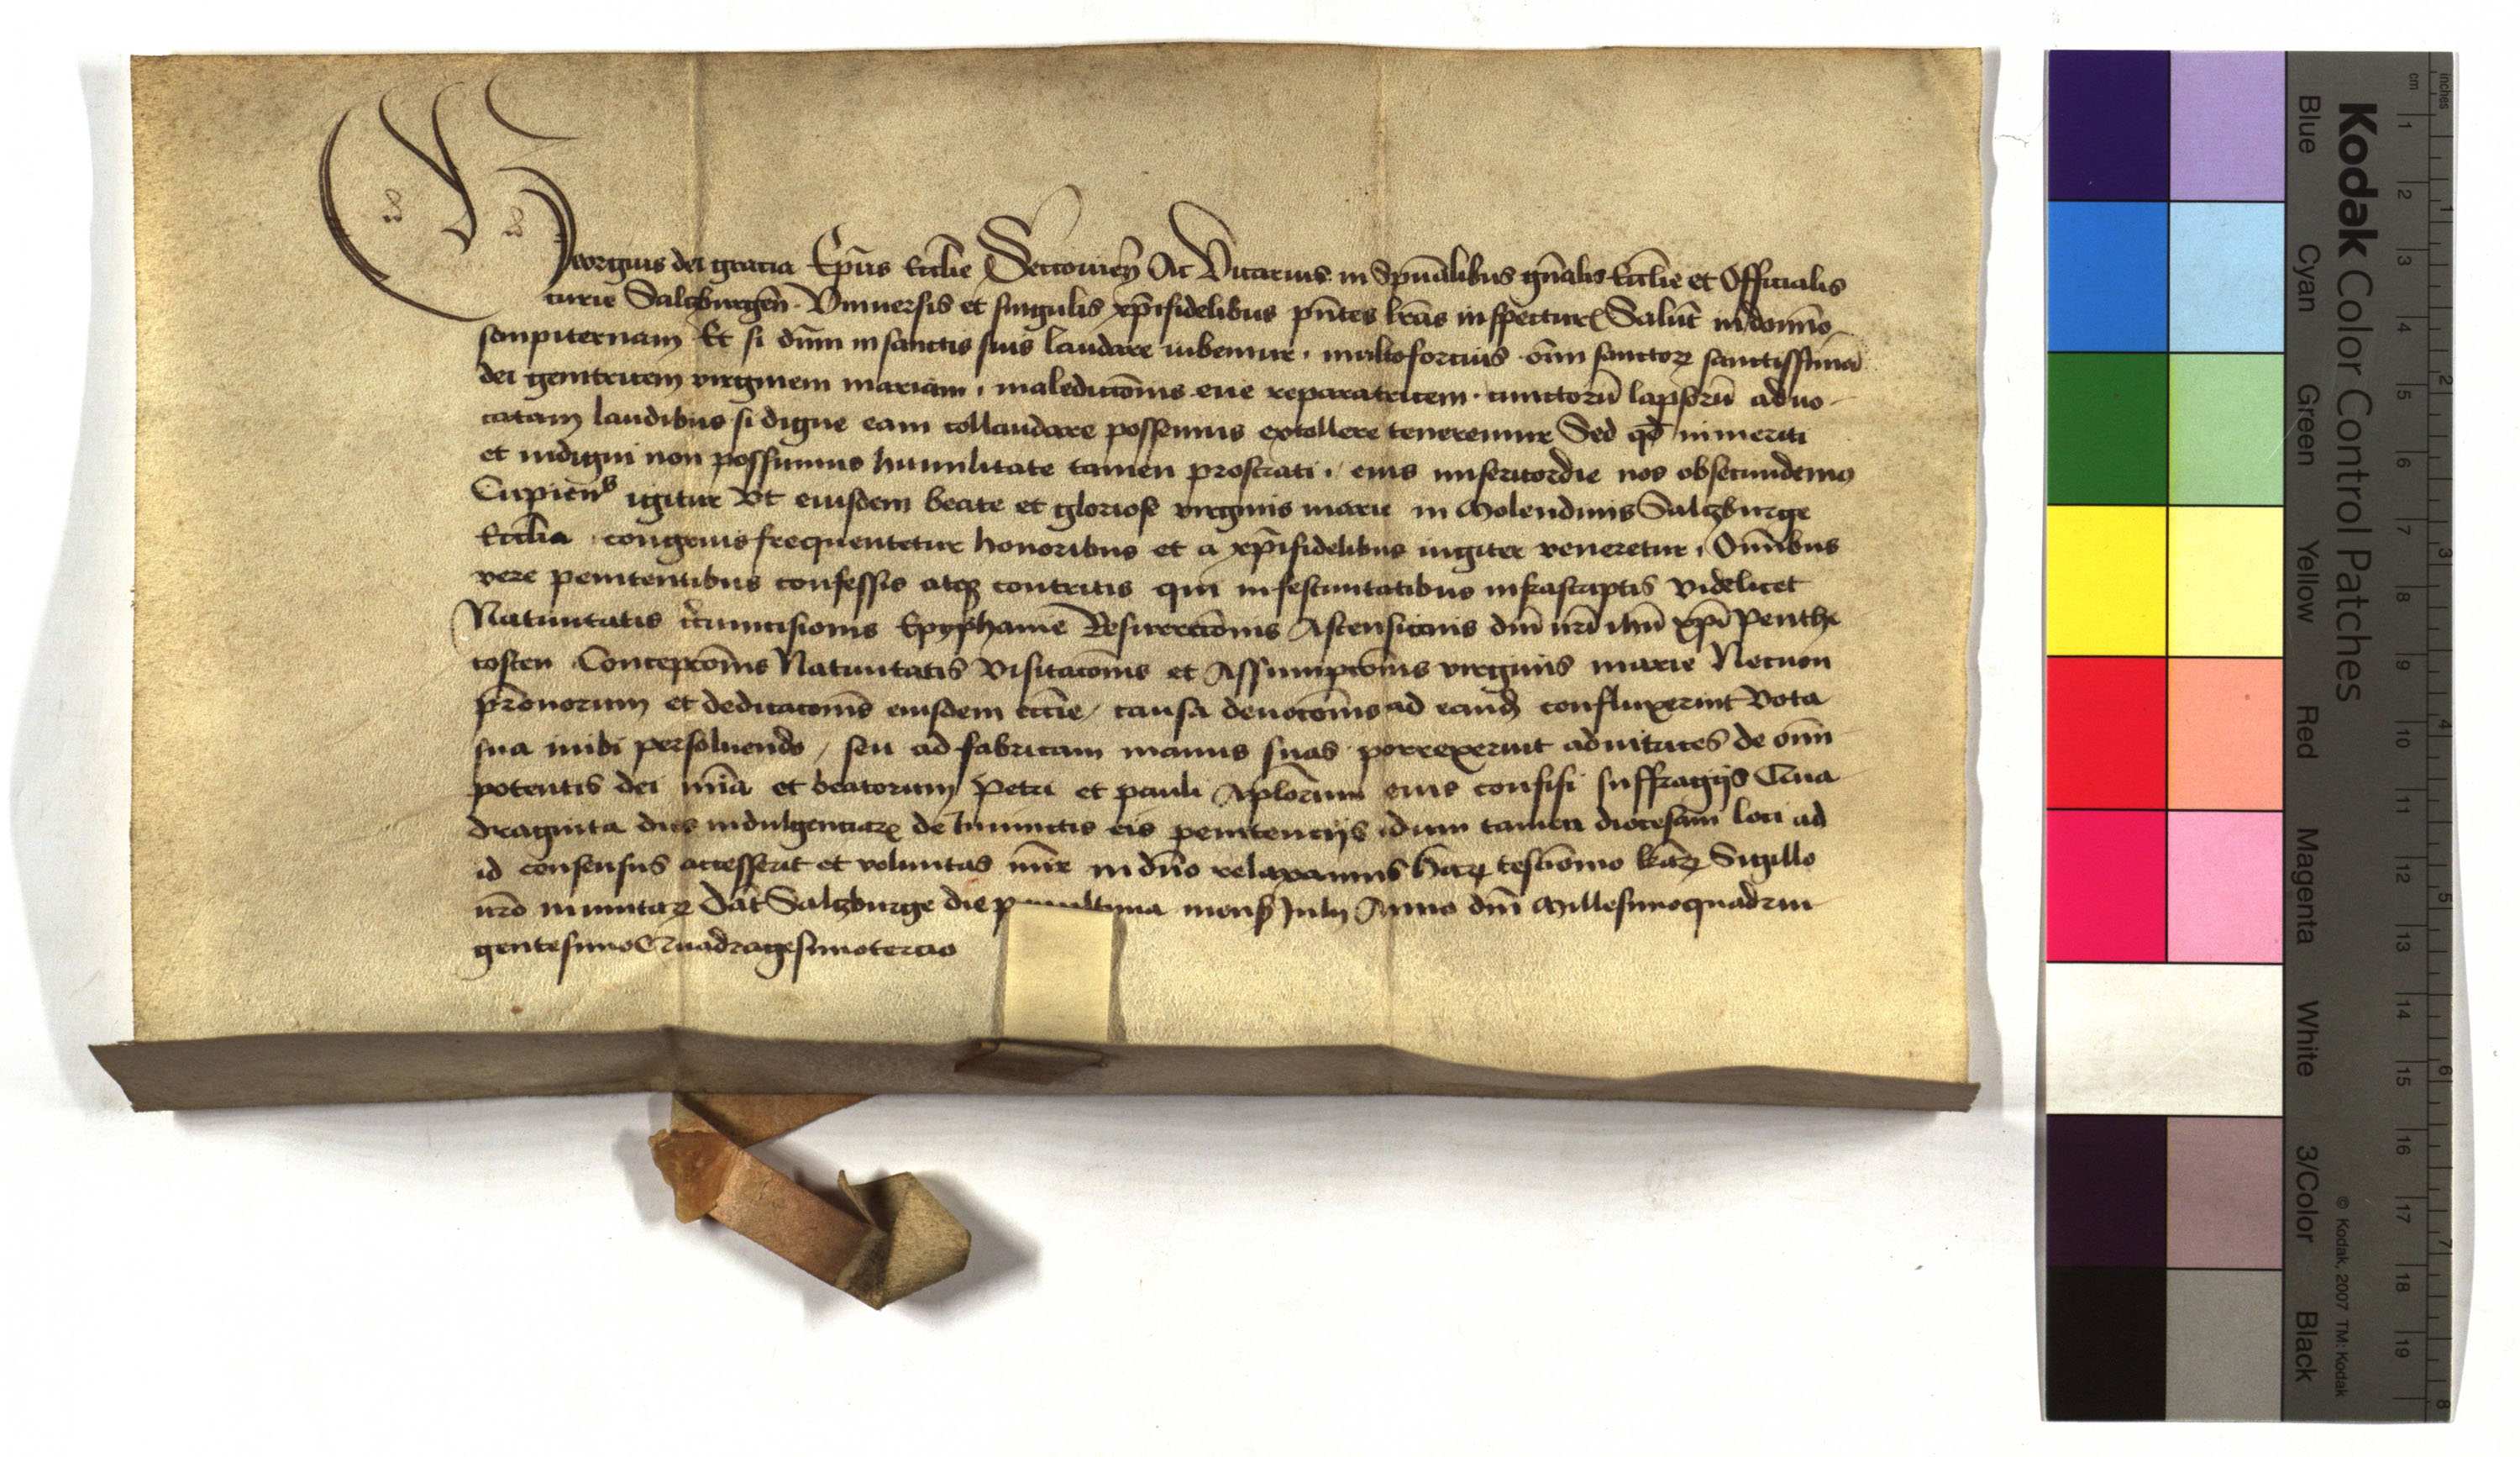 Georgius dei gracia Ep̄us Eccl̄ie Seccouien̄ Ac Vicarius in Sp̄ualibus gn̄alis Eccl̄ie et Officialis
curie Salczburgen̄ · Vniuersis et singulis xp̄ifidelibus pn̄tes lr̄as inspecturꝭ Salut̄ in domīno
sempiternam Et si dn̄m in sanctis suis laudare iubemur · multofortius om̄i sanctoꝝ sanctissimā
dei genitricem virginem mariam · maledictōnis eue reparatricem · cunctorū lapsorū aduo-
catam laudibus si digne eam collaudare possemus extollere teneremur Sed qꝛ inmeriti
et indigni non possumus humilitate tamen prostrati · eius misericordie nos obsecundamꝰ
Cupientes igitur Vt eiusdem beate et gloriose virginis marie in Molendinis Salczburge
Eccl̄ia congruis frequentetur honoribus et a xp̄ifidelibus iugiter veneretur · Om̄ibus
vere penitentibus confessis atqꝫ contritis qui in festiuitatibus infrascriptis videlicet
Natiuitatis Circumcisionis Epyphanie Resurrectōnis Ascensionis dn̄i nr̄i ihū xp̄i Penthe
costen Conceptōnis Natiuitatis Visitatōnis et Assumptōnis virginis marie Necnon
pr̄onorum et dedicatōnis eiusdem eccl̄ie / causa deuotōnis ad eand̄ confluxerint Vota
sua inibi persoluendo / seu ad fabricam manus suas porrexerint adiutrices de om̄i
potentis dei mīa et beatorum Petri et pauli Apl̄orum eius confisi suffragijs Qua
draginta dies indulgenciaꝝ de Iniunctis eis penitencijs dum tamen diocesani loci ad
id consensus accesserit et voluntas mīr in dn̄o relaxamus Haꝝ testiōnio lr̄aꝝ Sigillo
nr̄o munitaꝝ Dat̄ Salczburge die penultima mensꝭ Julij Anno dn̄i Millesimoquadrin
gentesimoQuadragesimotercio
Kodak Color Control Patches
Blue Cyan Green Yellow Red Magenta White 3/Color Black
© Kodak, 2007 TM: Kodak
cm 1 2 3 4 5 6 7 8 9 10 11 12 13 14 15 16 17 18 19
inches 1 2 3 4 5 6 7 8